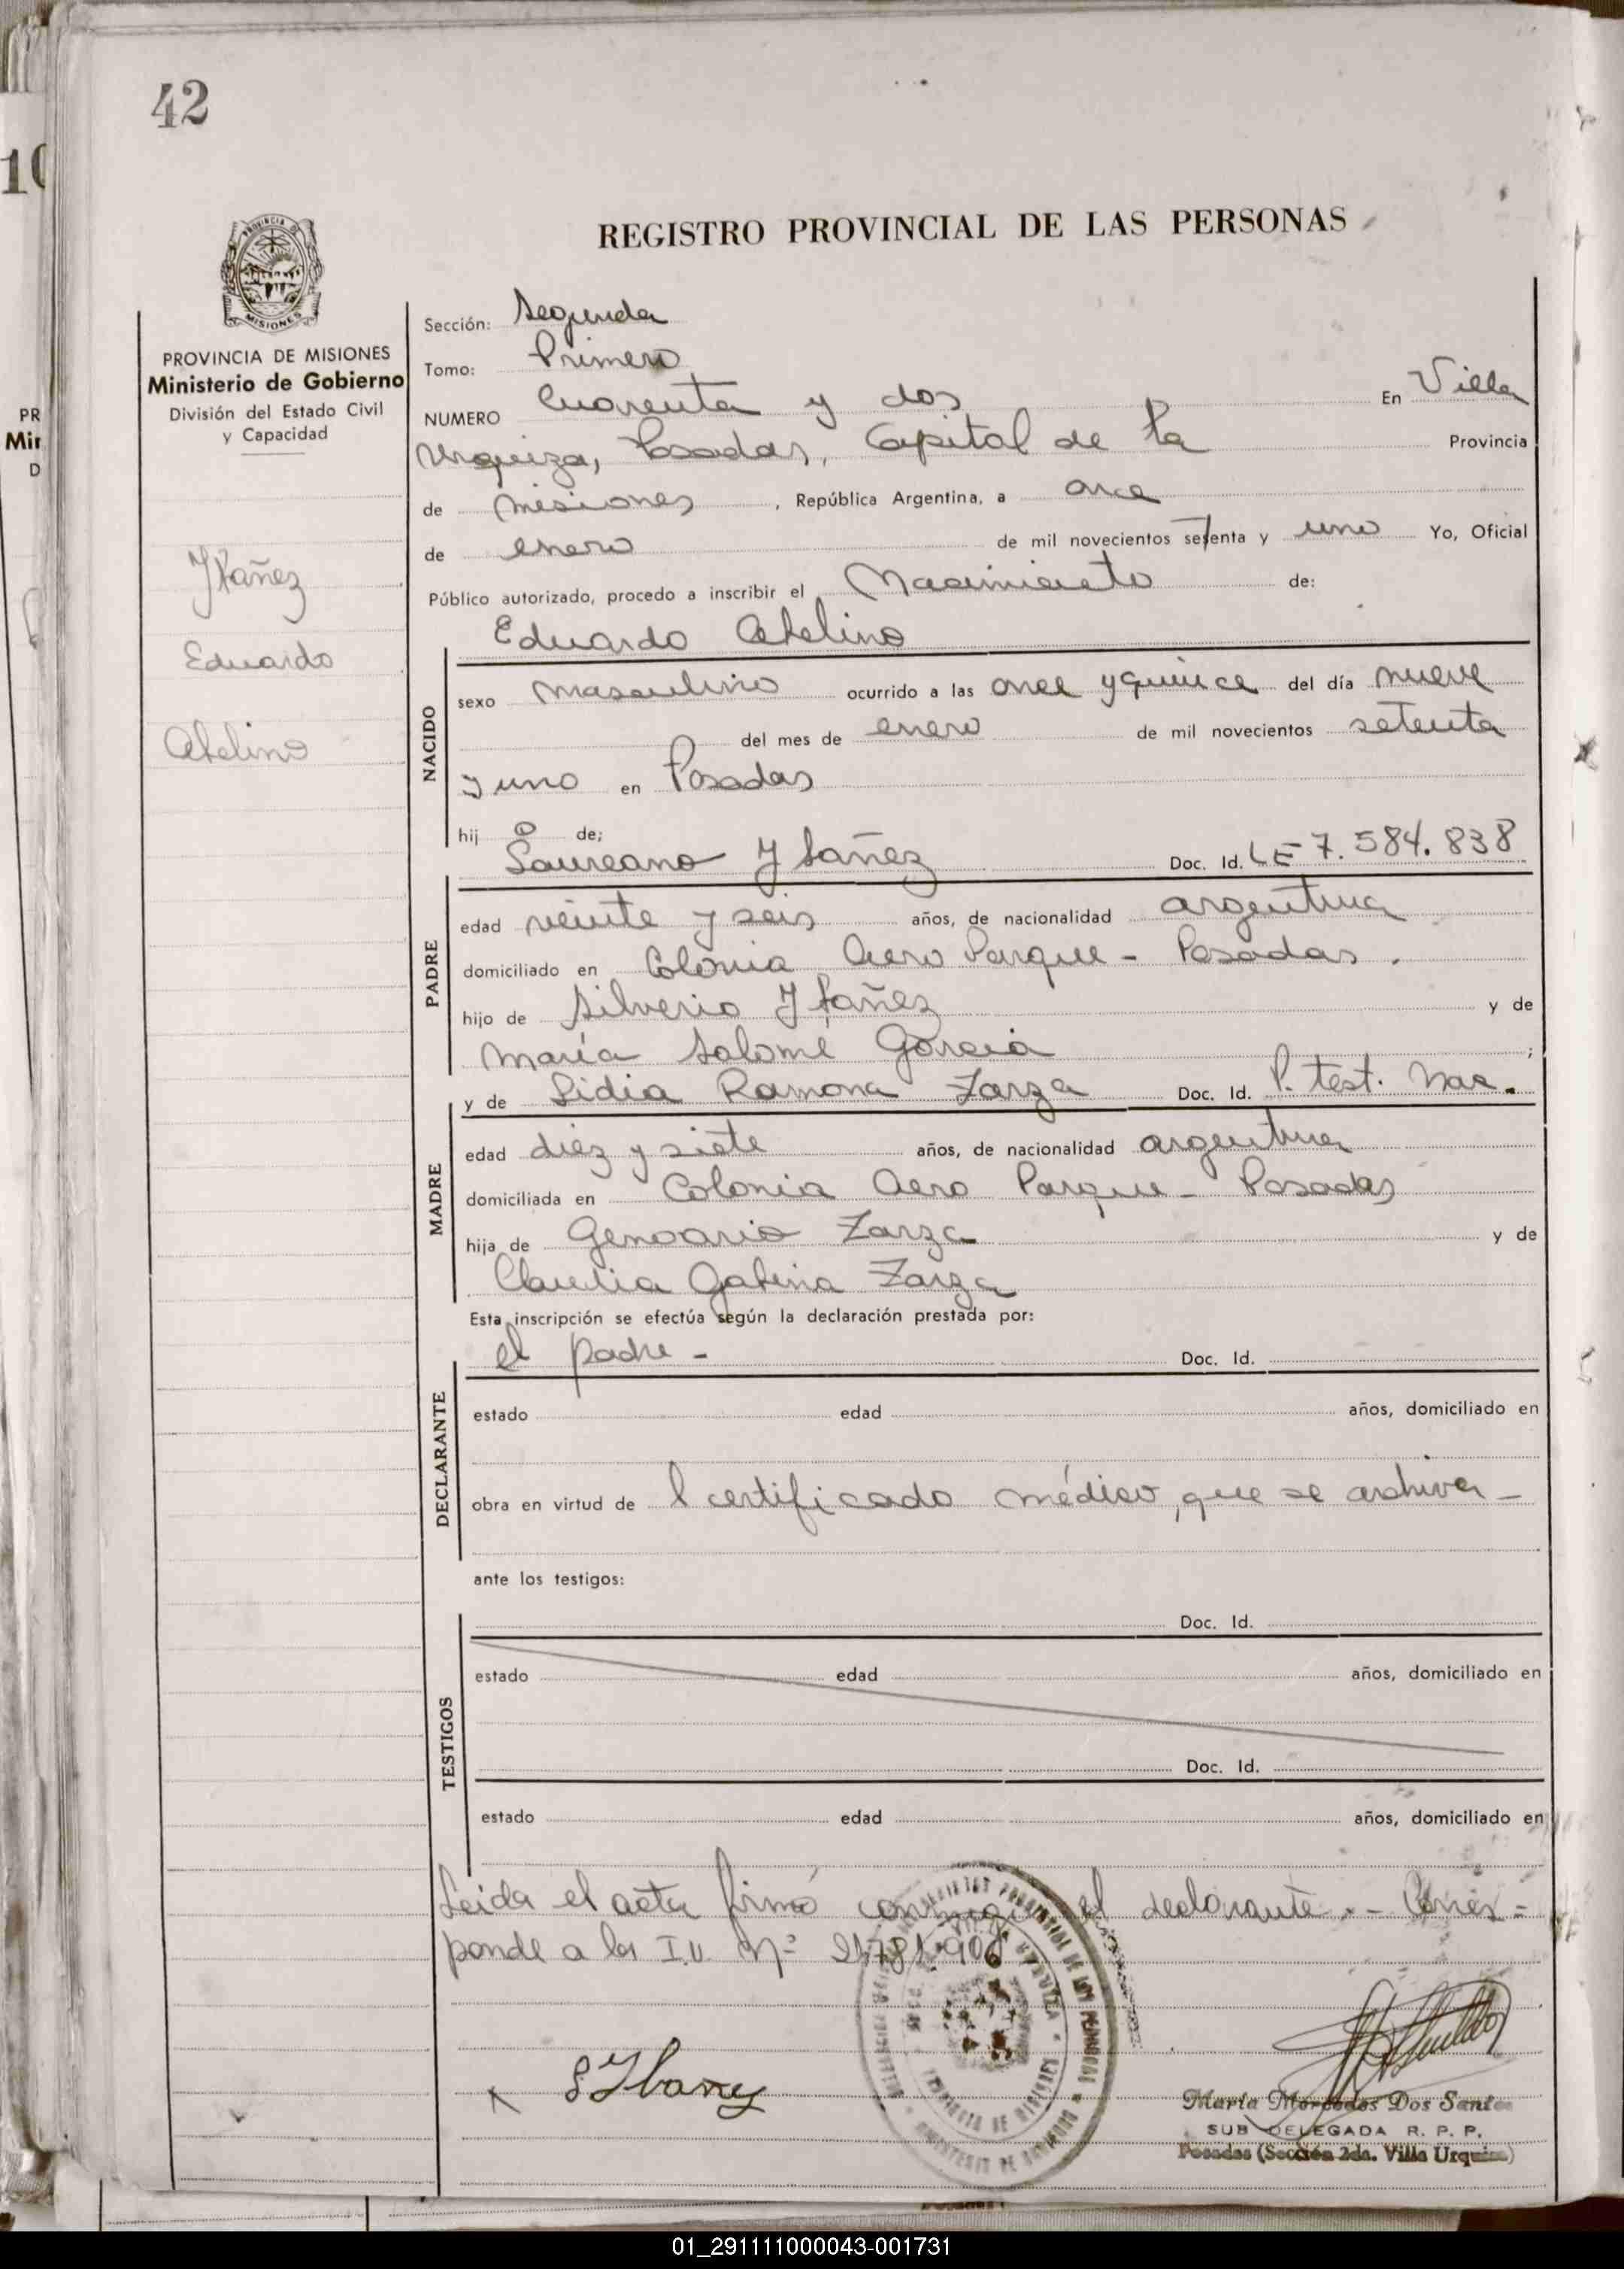 42
REGISTRO PROVINCIAL DE LAS PERSONAS
PROVINCIA DE MISIONES
Ministerio de Gobierno
División del Estado Civil
y Capacidad
Ybañez
Eduardo
Abelino
Sección: Segunda
Tomo: Primero
NUMERO Cuarenta y dos En Villa
Urquiza, Posadas, Capital de la Provincia
de Misiones, República Argentina, a once
de enero de mil novecientos setenta y uno Yo, Oficial
Público autorizado, procedo a inscribir el Nacimiento de:
Eduardo Abelino
NACIDO
sexo masculino ocurrido a las once y quince del día nueve
del mes de enero de mil novecientos setenta
y uno en Posadas
hij o de;
Laureano Ybañez Doc. Id. LE 7.584.838
PADRE
edad veinte y seis años, de nacionalidad argentina
domiciliado en Colonia Aero Parque - Posadas.
hijo de Silverio Ybañez y de
María Salomé Garcia ;
y de Lidia Ramona Zarza Doc. Id. P. test. Nac.
MADRE
edad diez y siete años, de nacionalidad argentina
domiciliada en Colonia Aero Parque - Posadas
hija de Genoario Zarza y de
Claudia Gabina Zarza
Esta inscripción se efectúa según la declaración prestada por:
el padre - Doc. Id.
DECLARANTE
estado edad años, domiciliado en
obra en virtud de l certificado médico, que se archiva -
ante los testigos:
Doc. Id.
TESTIGOS
estado edad años, domiciliado en
Doc. Id.
estado edad años, domiciliado en
Leida el acta firmó conmigo el declarante. - Corres=
ponde a la I.U. Nº 21.781.906
S Ybañez
Maria Mercedes Dos Santos
SUB DELEGADA R. P. P.
Posadas (Sección 2da. Villa Urquiza)
01_291111000043-001731